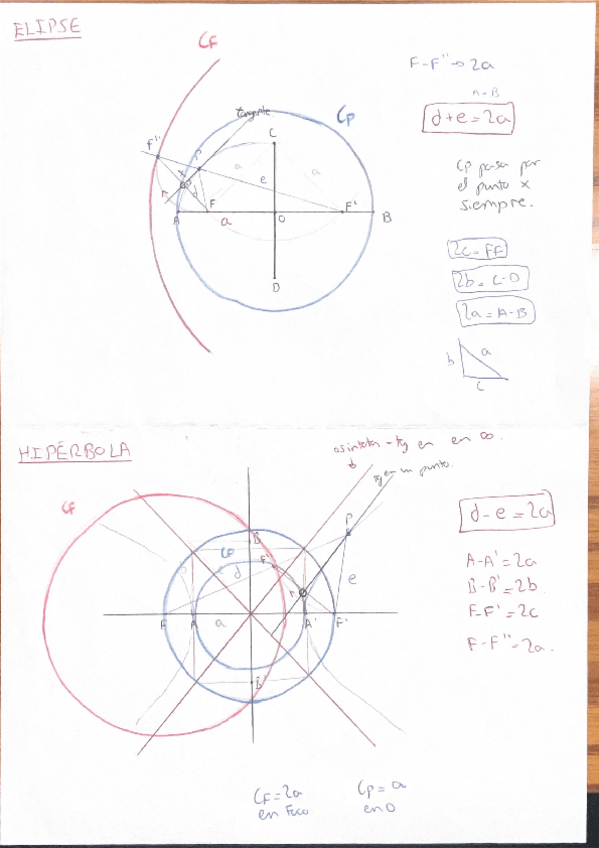 ELIPSE
CF
F-F''→2a
A-B
d+e=2a
tangente
CP
F''
P
C
a
a
CP pasa por
el punto x
siempre.
x
e
d
r
A
F
a
O
F'
B
2c=FF'
2b=C-D
2a=A-B
D
b
a
c
HIPÉRBOLA
asíntota - tg en en ∞.
tg en un punto.
CF
d-e=2a
P
B
CP
d
F''
A-A'=2a
B-B'=2b
e
r
F-F'=2c
F
A
a
A'
F'
F-F''=2a.
B'
CF=2a
en Foco
CP=a
en O